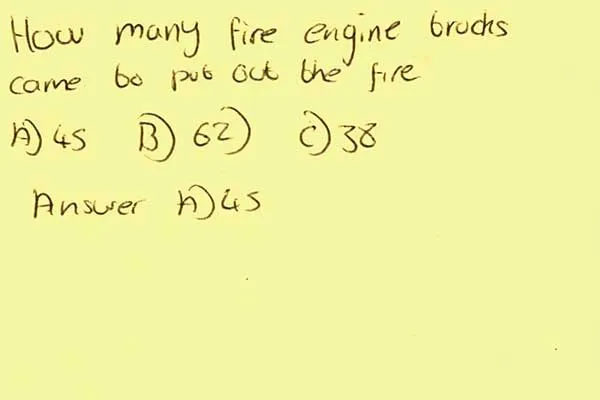 How many fire engine trucks
came to put out the fire
A) 45 B) 62) C) 38
Answer A) 45